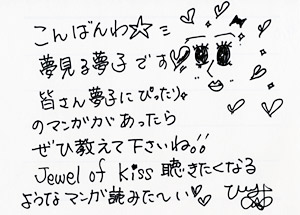 こんばんわ☆ミ
夢見る夢子です
皆さん夢子にぴったり
のマンガがあったら
ぜひ教えて下さいね!!
Jewel of kiss 聴きたくなる
ようなマンガ読みた〜い